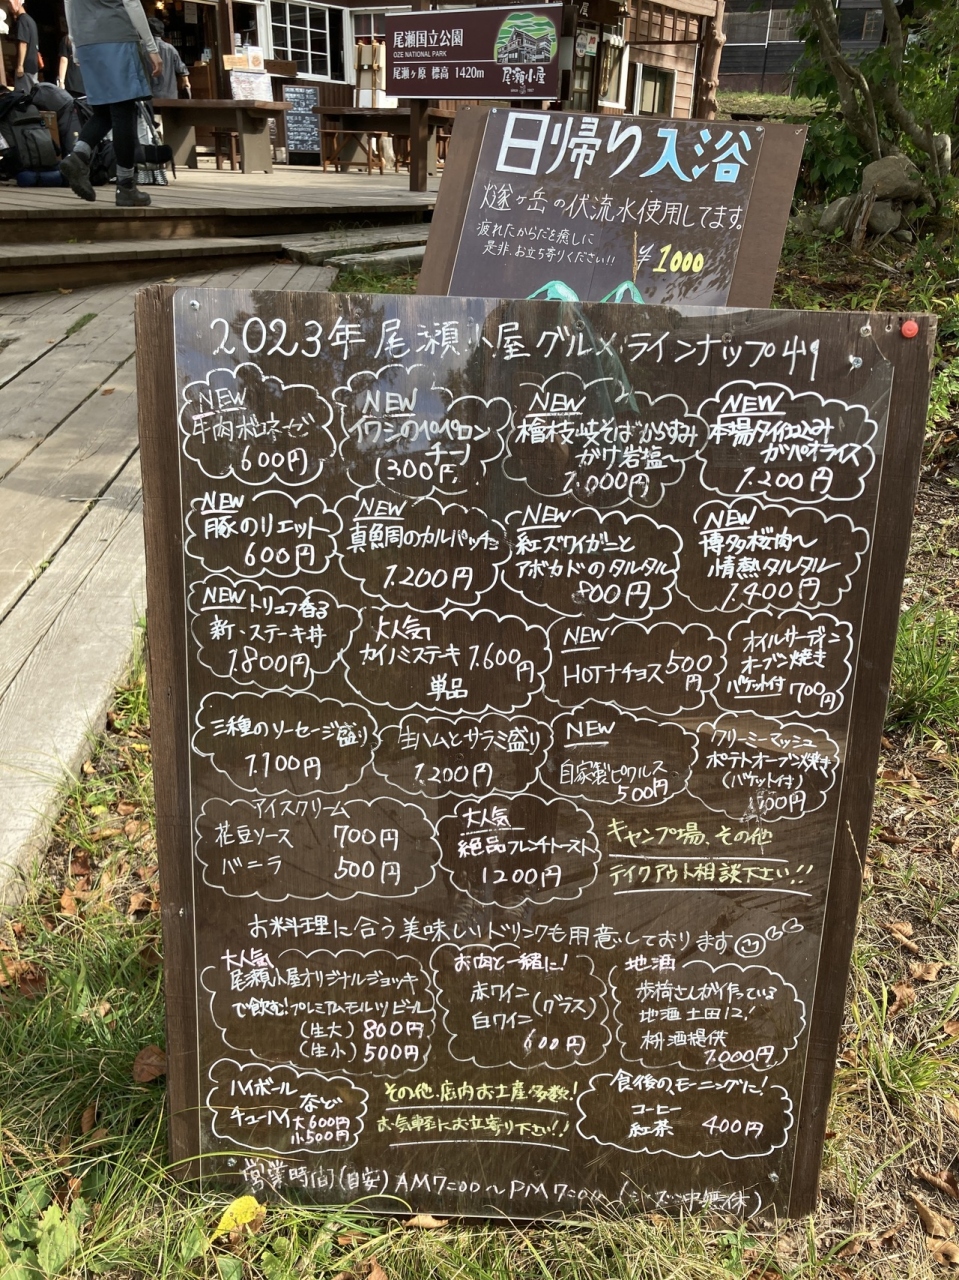 尾瀬国立公園
OZE NATIONAL PARK
尾瀬ヶ原 標高 1420m
尾瀬小屋
日帰り入浴
燧ヶ岳の伏流水使用してます。
疲れたからだを癒しに
是非、お立ち寄りください!!
¥1000
2023年 尾瀬小屋グルメラインナップ
NEW
600円
NEW
イワシのペペロン
チーノ
1300円
NEW
檜枝岐そばからすみ
がけ岩塩~
1.000円
NEW
本場タイ
ガパオライス
1.200円
NEW
豚のリエット
600円
NEW
真鯛のカルパッチョ
1.200円
NEW
紅ズワイガニと
アボカドのタルタル
800円
NEW
博多桜肉~
情熱タルタル
1.400円
NEW トリュフ香る
新、ステーキ丼
1.800円
大人気
カイノミステーキ 1.600円
単品
NEW
HOTナチョス 500円
オイルサーディン
オーブン焼き
バケット付 700円
三種のソーセージ盛り
1.100円
生ハムとサラミ盛り
1.200円
NEW
自家製ピクルス
500円
クリーミーマッシュ
ポテトオーブン焼き
(バケット付)
アイスクリーム
花豆ソース 700円
バニラ 500円
大人気
絶品フレンチトースト
1200円
キャンプ場、その他
テイクアウト相談下さい!!
お料理に合う美味しいドリンクも用意しております
大人気
尾瀬小屋オリジナルジョッキ
で飲む!プレミアムモルツビール
(生大) 800円
(生小) 500円
お肉と一緒に!
赤ワイン
白ワイン (グラス)
600円
地酒
歩荷さんが作っている
地酒 土田12!
枡酒提供
1.000円
ハイボール
チューハイ など
大600円
小500円
その他、店内お土産多数!
お気軽にお立寄り下さい!!
食後のモーニングに!
コーヒー
紅茶 400円
営業時間(目安) AM7:00~PM7:00 (シーズン中無休)